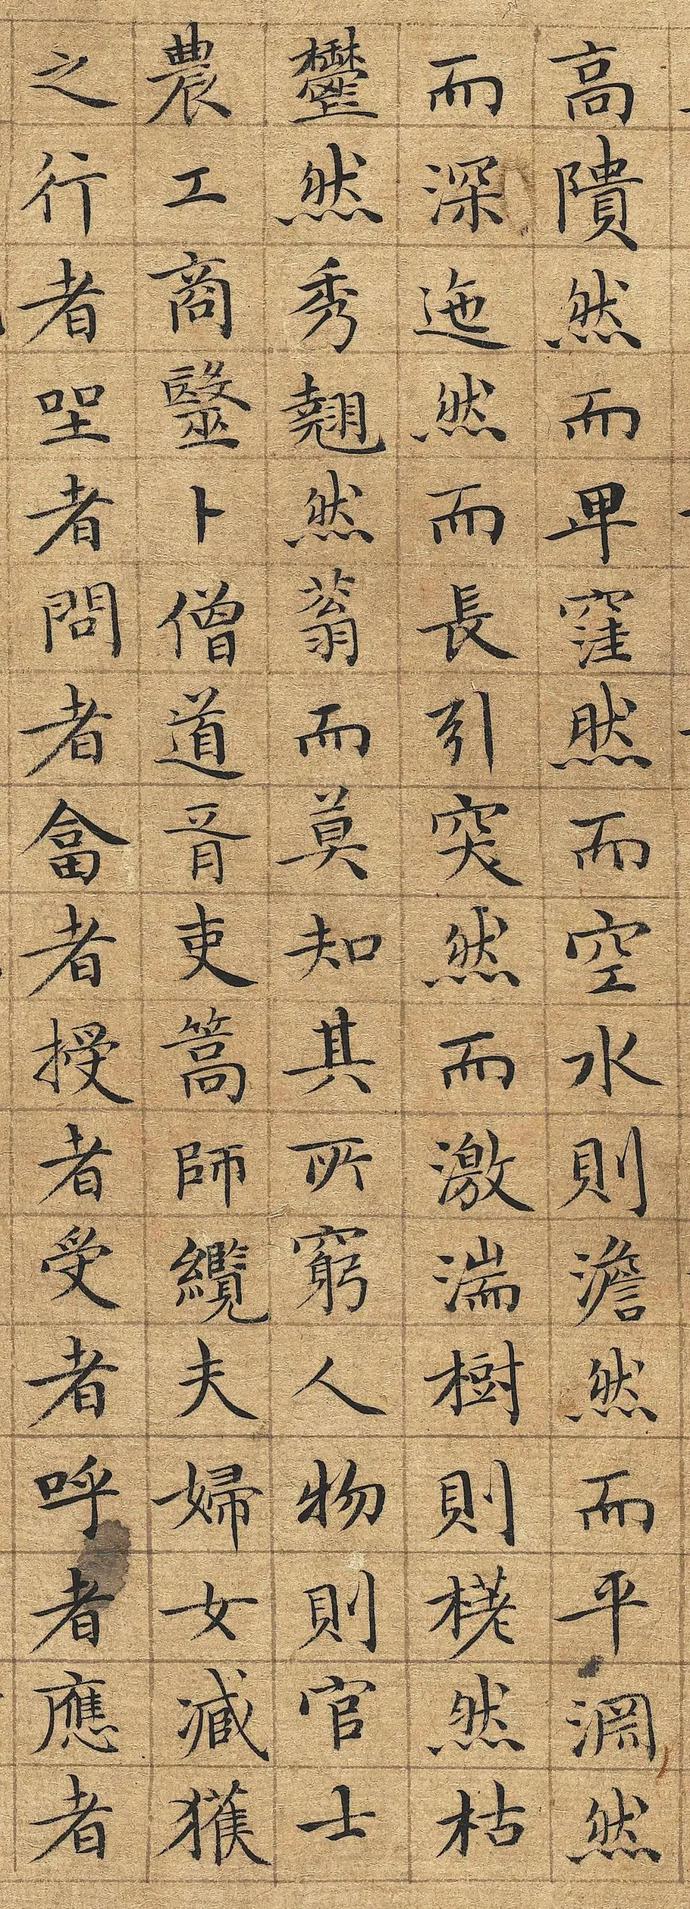 高隤然而卑窪然而空水則澹然而平淵然
而深迤然而長引突然而激湍樹則槎然枯
鬱然秀翹然蓊而莫知其所窮人物則官士
農工商毉卜僧道胥吏篙師纜夫婦女臧獲
之行者坐者問者畣者授者受者呼者應者